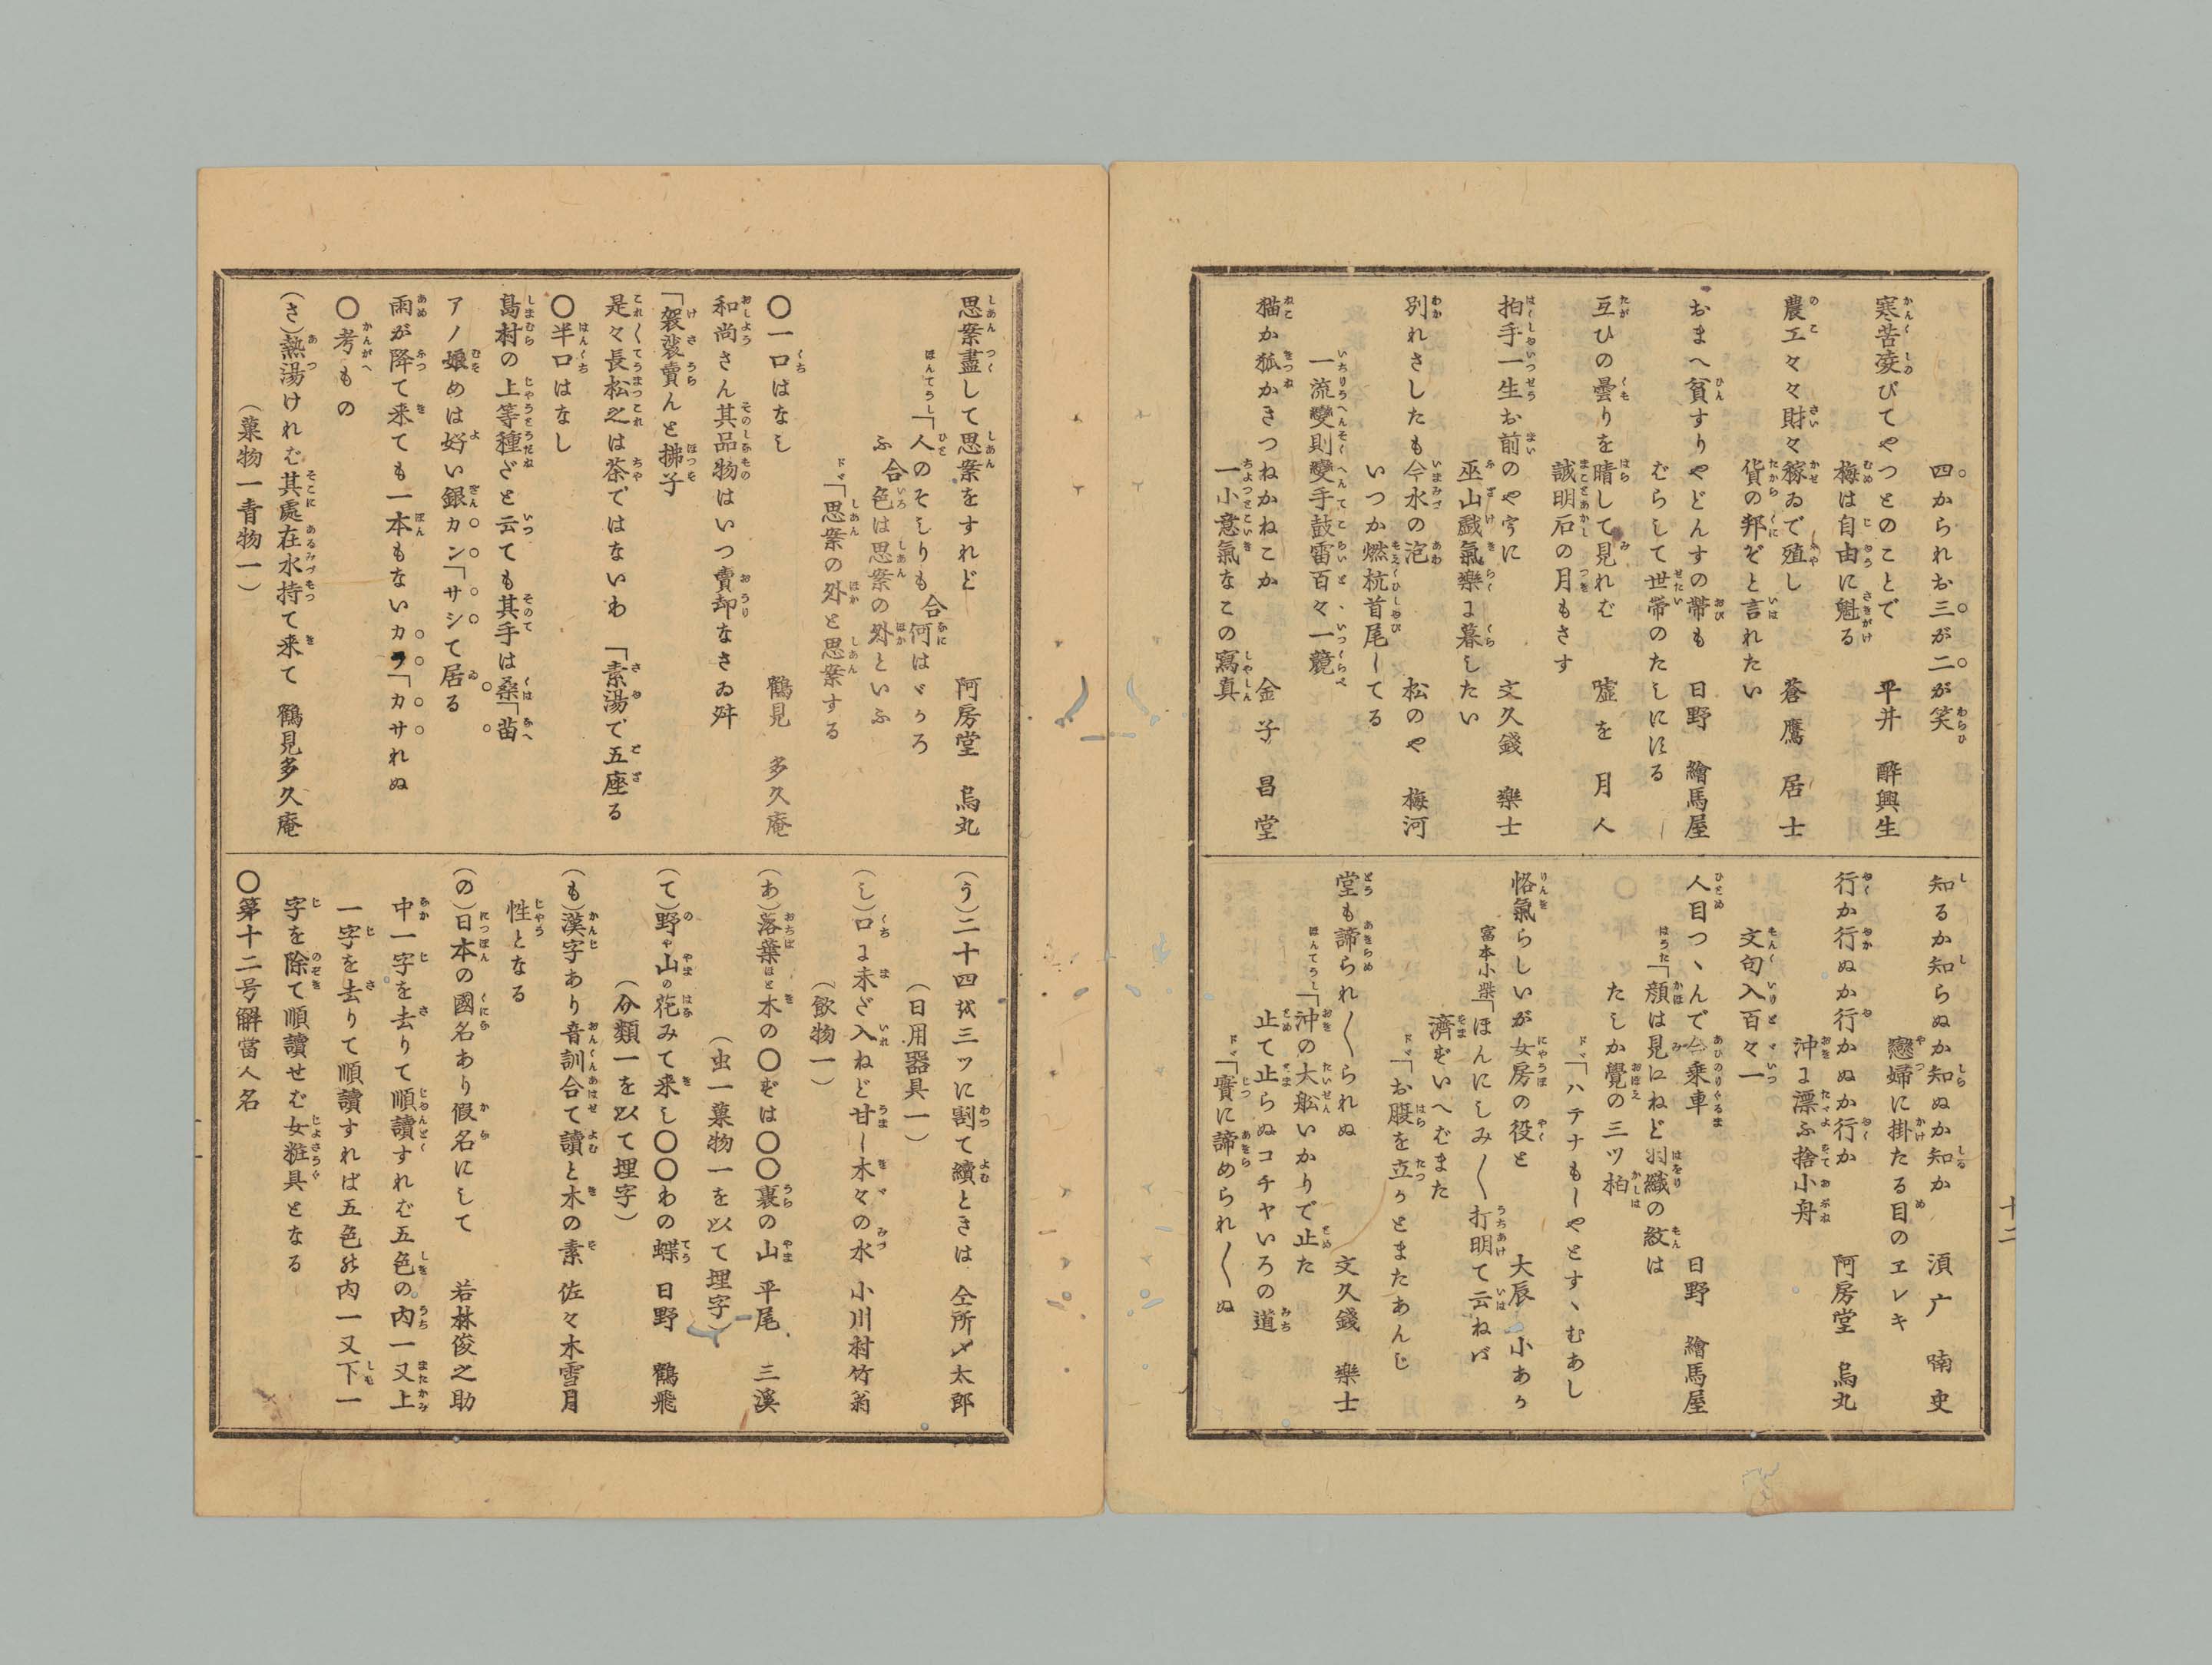 四かられお三が二が笑
寒苦凌びてやつとのことで　平井　醉興生
梅は自由に魁る
農工々々財々稼ゐで殖し　蒼鷹居士
貨の邦ぞと言れたい
おまへ貧すりやどんすの帯も　日野　繪馬屋
むらして世帯のたしにする
互ひの曇りを晴して見れば　嘘を月人
誠明石の月もさす
拍手一生お前のや寧に　文久錢　樂士
巫山戯氣樂に暮したい
別れさしたも今水の泡　松のや　梅河
いつか燃杭首尾してる
一流變則變手鼓雷百々一競
猫か狐かきつねかねこか　金子昌堂
一小意氣なこの寫真
知るか知らぬか知ぬか知か　須广　喃史
戀婦に掛たる目のヱレキ
行か行ぬか行かぬか行か　阿房堂　烏丸
沖に漂ふ捨小舟
文句入百々一
人目つゝんで合乗車　日野　繪馬屋
はうた「顔は見にねど羽織の紋は
たしか覺の三ツ柏
ドヾ「ハテナもしやとすゝむあし
悋氣らしいが女房の役と　大辰　小あり
富本小柴「ほんにしみ〱打明て云ねば
濟ぞいへばまた
ドヾ「お腹を立りとまたあんじ
堂も諦られ〱られぬ　文久錢　樂士
ほんてうし「沖の大舩いかりで止た
止て止らぬコチヤいろの道
ドヾ「實に諦められ〱ぬ
十二
思案盡して思案をすれど　阿房堂　烏丸
ほんてうし「人のそしりも合何はゞろ
ふ合色は思案の外といふ
ドヾ「思案の外と思案する
〇一口はなし　鶴見　多久庵
和尚さん其品物はいつ賣却なさゐ舛
「袈裟賣んと拂子
是々長松之は茶ではないわ「素湯で五座る
〇半口はなし
島村の上等種ざと云ても其手は桑「苗
アノ娘めは好い銀カン「サシて居る
雨が降て来ても一本もないカラ「カサれぬ
〇考もの
(さ)熱湯けれむ其處在水持て来て　鶴見多久庵
(菓物一青物一)
(う)二十四弐三ツに割て續ときは　仝所〆太郎
(日用器具一)
(し)口に未ざ入ねど甘し木々の水　小川村竹翁
(飲物一)
(あ)落葉ほと木の〇ぞは〇〇裏の山　平尾　三溪
(虫一菓物一を以て埋字)
(て)野や山の花みて来し〇〇わの蝶　日野　鶴飛
(分類一を以て埋字)
(も)漢字あり音訓合て讀と木の素　佐々木雪月
性となる
(の)日本の國名あり假名にして　若林俊之助
中一字を去りて順讀すれむ五色の内一又上
一字を去りて順讀すれば五色の内一又下一
字を除て順讀せむ女粧具となる
〇第十二号解當人名